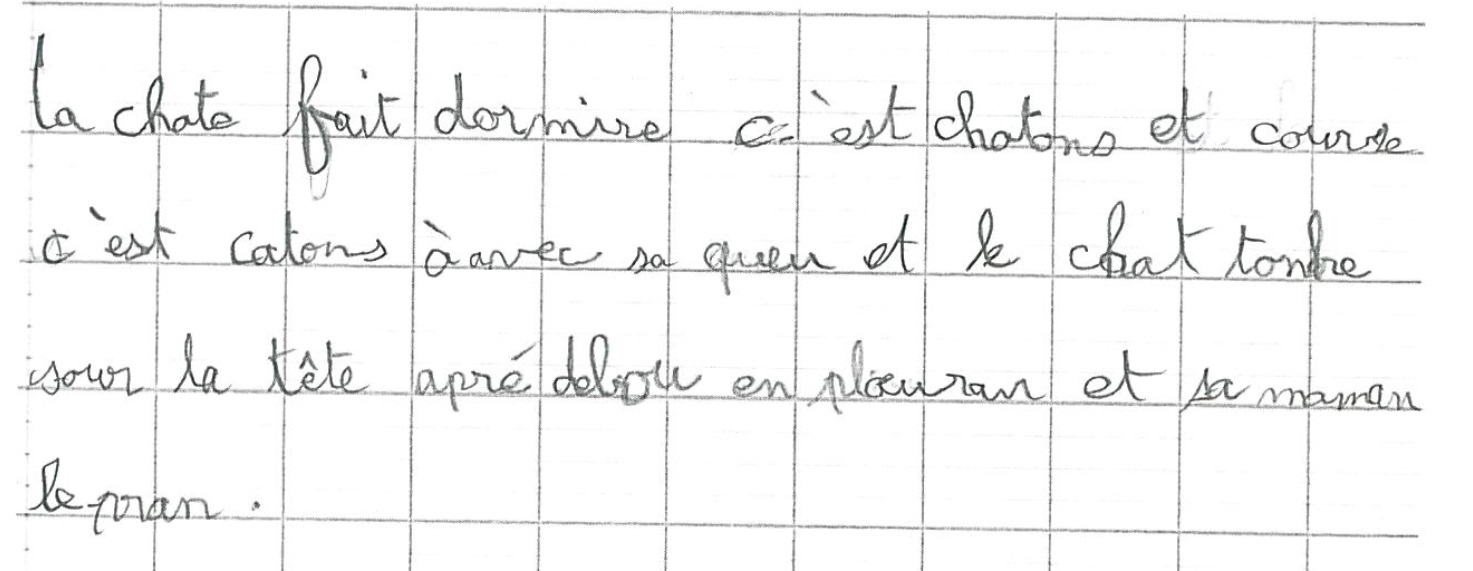 la chate fait dormire c'èst chatons et course
c'èst catons à avec sa queu et le chat tonbe
sour la tête apré debou en plœuran et sa maman
le pran.